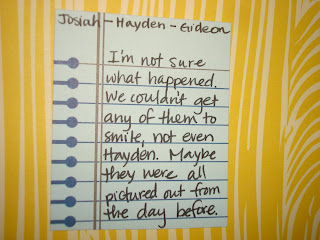 Josiah - Hayden - Gideon
I'm not sure
what happened.
We couldn't get
any of them to
smile, not even
Hayden. Maybe
they were all
pictured out from
the day before.